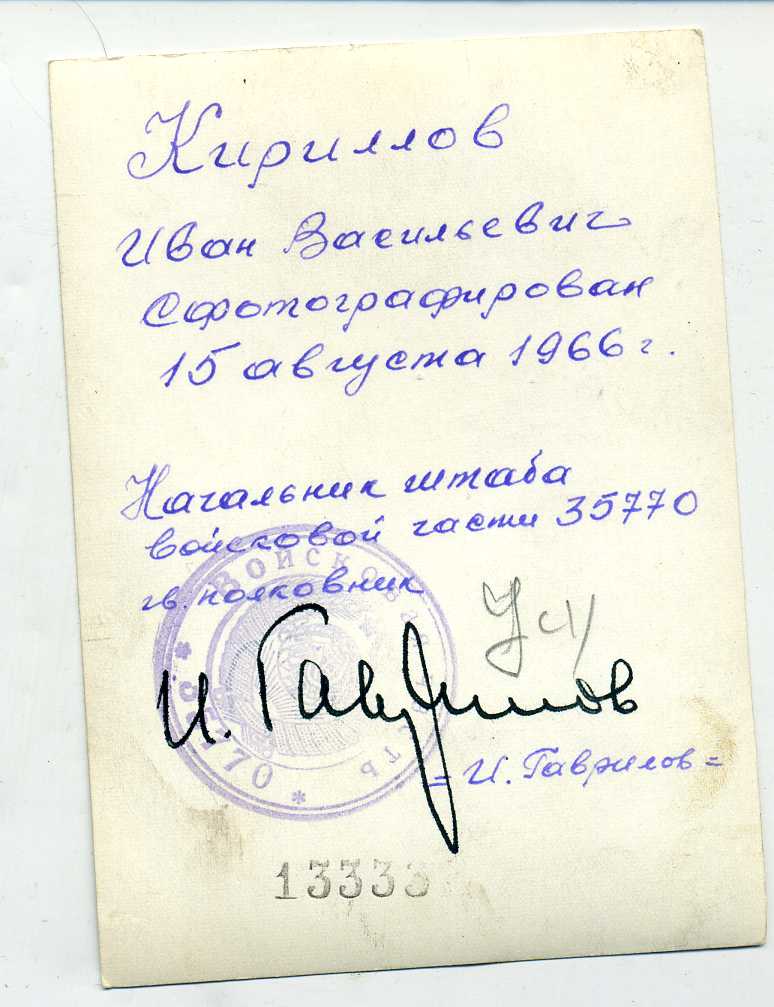 Кириллов
Иван Васильевич
Сфотографирован
15 августа 1966 г.
Начальник штаба
войсковой части 35770
гв. полковник
* ВОЙСКОВАЯ ЧАСТЬ * 35770
И. Гаврилов
= И. Гаврилов =
13333